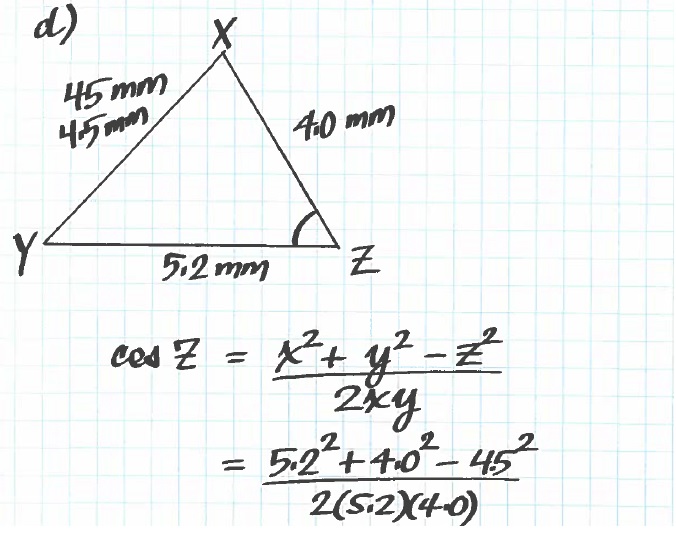 d)
X
45 mm
4.5 mm
4.0 mm
Y
5.2 mm
Z
cos Z = x² + y² - z² / 2xy
= 5.2² + 4.0² - 4.5² / 2(5.2)(4.0)